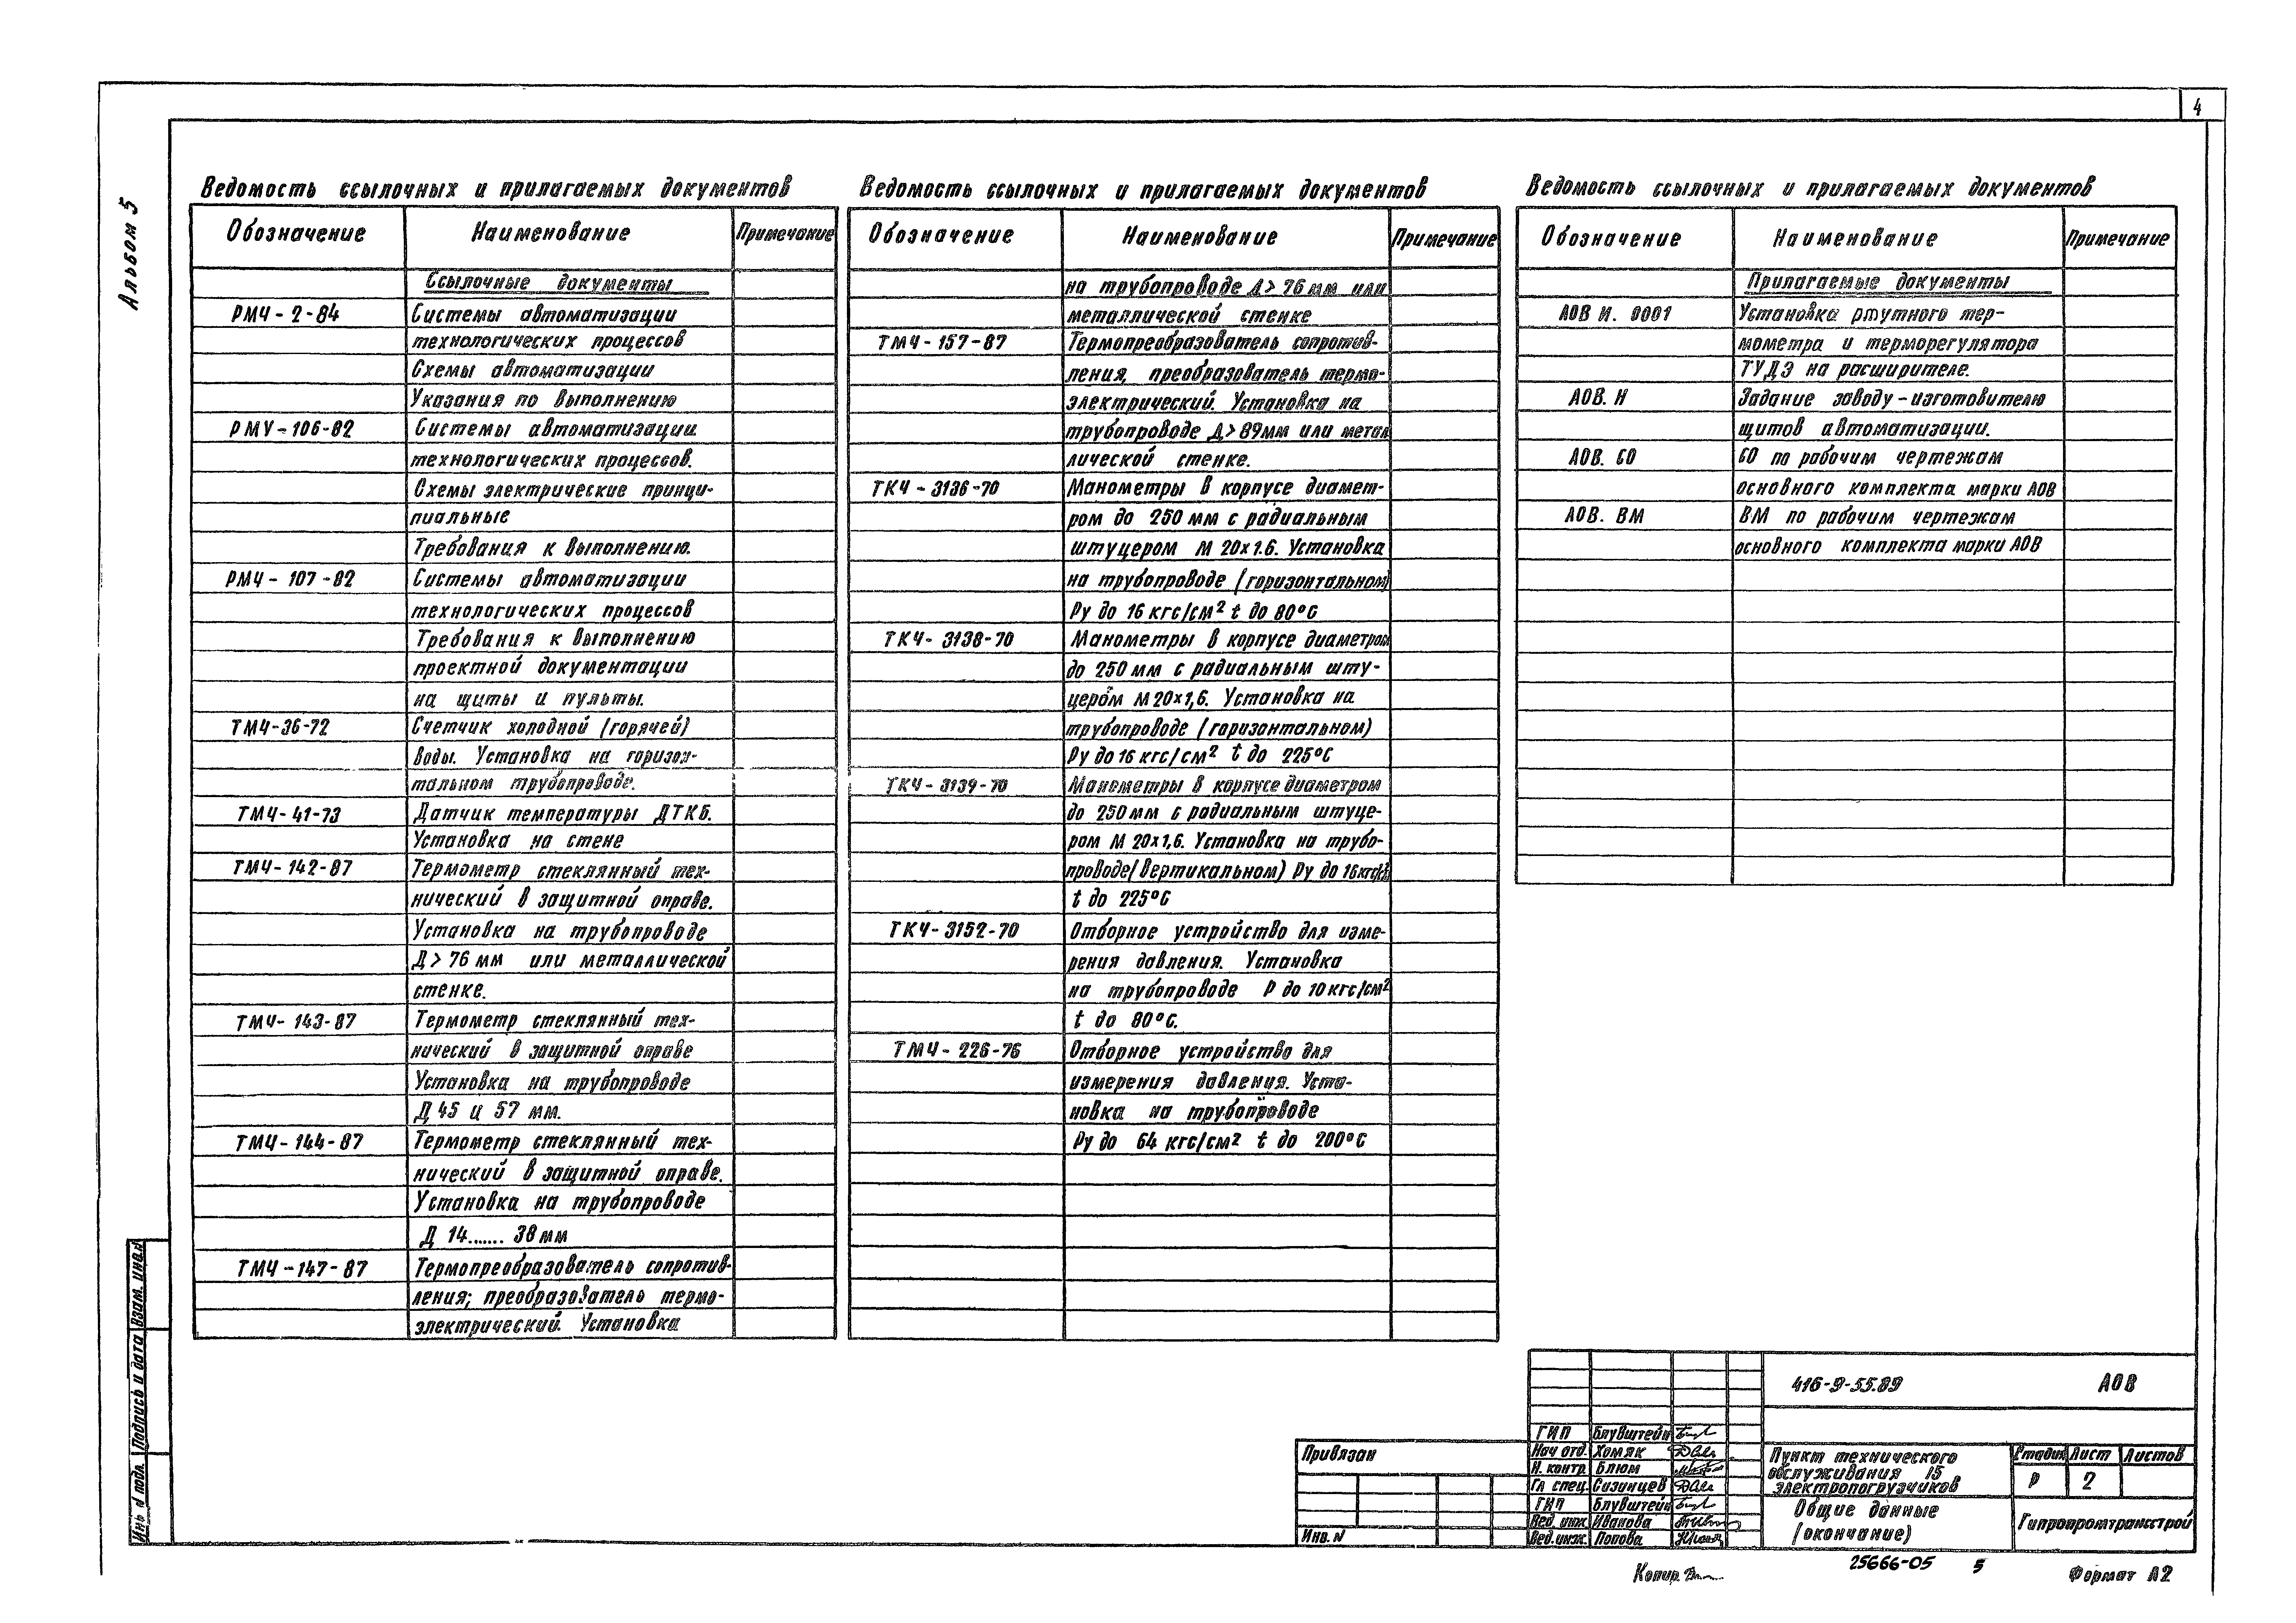 4
Альбом 5
Ведомость ссылочных и прилагаемых документов
Обозначение Наименование Примечание
Ссылочные документы
РМЧ-2-84 Системы автоматизации
технологических процессов
Схемы автоматизации
Указания по выполнению
РМУ-106-82 Системы автоматизации
технологических процессов.
Схемы электрические принци-
пиальные
Требования к выполнению.
РМЧ-107-82 Системы автоматизации
технологических процессов
Требования к выполнению
проектной документации
на щиты и пульты.
ТМЧ-36-72 Счетчик холодной (горячей)
воды. Установка на горизон-
тальном трубопроводе.
ТМЧ-41-73 Датчик температуры ДТКБ.
Установка на стене
ТМЧ-142-87 Термометр стеклянный тех-
нический в защитной оправе.
Установка на трубопроводе
Д>76 мм или металлической
стенке.
ТМЧ-143-87 Термометр стеклянный тех-
нический в защитной оправе
Установка на трубопроводе
Д 45 и 57 мм.
ТМЧ-144-87 Термометр стеклянный тех-
нический в защитной оправе.
Установка на трубопроводе
Д 14....... 38 мм
ТМЧ-147-87 Термопреобразователь сопротив-
ления; преобразователь термо-
электрический. Установка
Ведомость ссылочных и прилагаемых документов
Обозначение Наименование Примечание
на трубопроводе Д>76 мм или
металлической стенке
ТМЧ-157-87 Термопреобразователь сопротив-
ления, преобразователь термо-
электрический. Установка на
трубопроводе Д>89мм или метал
лической стенке.
ТКЧ-3136-70 Манометры в корпусе диамет-
ром до 250 мм с радиальным
штуцером М 20х1.6. Установка
на трубопроводе (горизонтальном)
Ру до 16 кгс/см² t до 80°С
ТКЧ-3138-70 Манометры в корпусе диаметром
до 250 мм с радиальным шту-
цером М 20х1,6. Установка на
трубопроводе (горизонтальном)
Ру до 16 кгс/см² t до 225°С
ТКЧ-3139-70 Манометры в корпусе диаметром
до 250 мм с радиальным штуце-
ром М 20х1,6. Установка на трубо-
проводе(вертикальном) Ру до 16 кгс/см²
t до 225°С
ТКЧ-3152-70 Отборное устройство для изме-
рения давления. Установка
на трубопроводе Р до 10 кгс/см²
t до 80°С.
ТМЧ-226-76 Отборное устройство для
измерения давления. Уста-
новка на трубопроводе
Ру до 64 кгс/см² t до 200°С
Ведомость ссылочных и прилагаемых документов
Обозначение Наименование Примечание
Прилагаемые документы
АОВ И. 0001 Установка ртутного тер-
мометра и терморегулятора
ТУДЭ на расширителе.
АОВ. Н Задание заводу-изготовителю
щитов автоматизации.
АОВ. СО СО по рабочим чертежам
основного комплекта марки АОВ
АОВ. ВМ ВМ по рабочим чертежам
основного комплекта марки АОВ
Инв N подл. Подпись и дата Взам. инв.N
Привязан
Инв. N
416-9-55.89 АОВ
ГИП Блувштейн
Нач отд. Хомяк
Н. контр. Блюм
Гл спец. Сизинцев
ГИП Блувштейн
Вед. инж. Иванова
Вед. инж. Попова
Пункт технического
обслуживания 15
электропогрузчиков
Стадия Лист Листов
Р 2
Общие данные
(окончание)
Гипропромтрансстрой
Копир.
25666-05 5
Формат А2